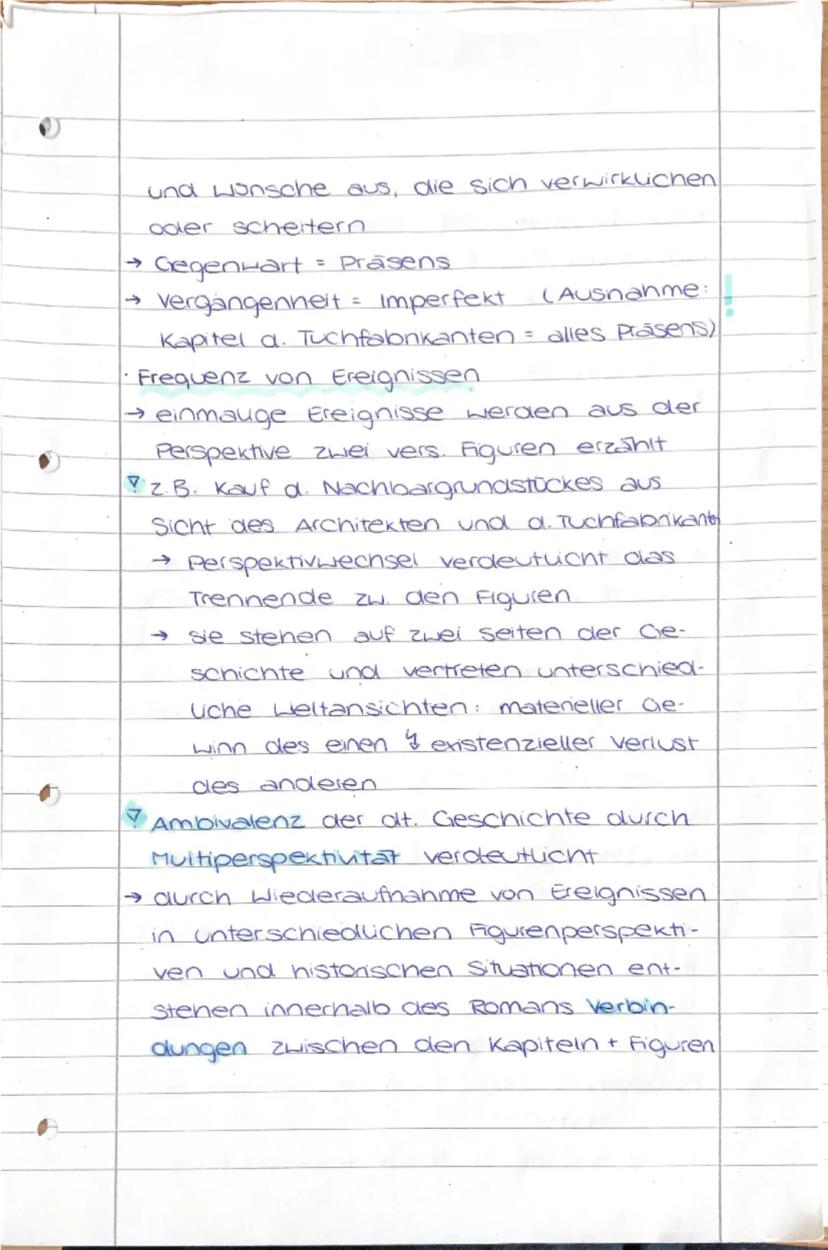 und Wünsche aus, die sich verwirklichen
oder scheitern
→ Gegenwart = Präsens
→ Vergangenheit = Imperfekt (Ausnahme: !
Kapitel d. Tuchfabrikanten = alles Präsens)
· Frequenz von Ereignissen
→ einmalige Ereignisse werden aus der
Perspektive zwei vers. Figuren erzählt
▽ z.B. Kauf d. Nachbargrundstückes aus
Sicht des Architekten und d. Tuchfabrikanten
→ Perspektivwechsel verdeutlicht das
Trennende zw. den Figuren
→ sie stehen auf zwei Seiten der Ge-
schichte und vertreten unterschied-
liche Weltansichten: materieller Ge-
winn des einen ↯ existenzieller Verlust
des anderen
▽ Ambivalenz der dt. Geschichte durch
Multiperspektivität verdeutlicht
→ durch Wiederaufnahme von Ereignissen
in unterschiedlichen Figurenperspekti-
ven und historischen Situationen ent-
stehen innerhalb des Romans Verbin-
dungen zwischen den Kapiteln + Figuren